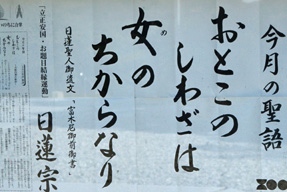 今月の聖語
おとこの
しわざは
女(め)の
ちからなり
日蓮聖人御遺文「富木尼御前御書」
日蓮宗
「立正安国・お題目結縁運動」